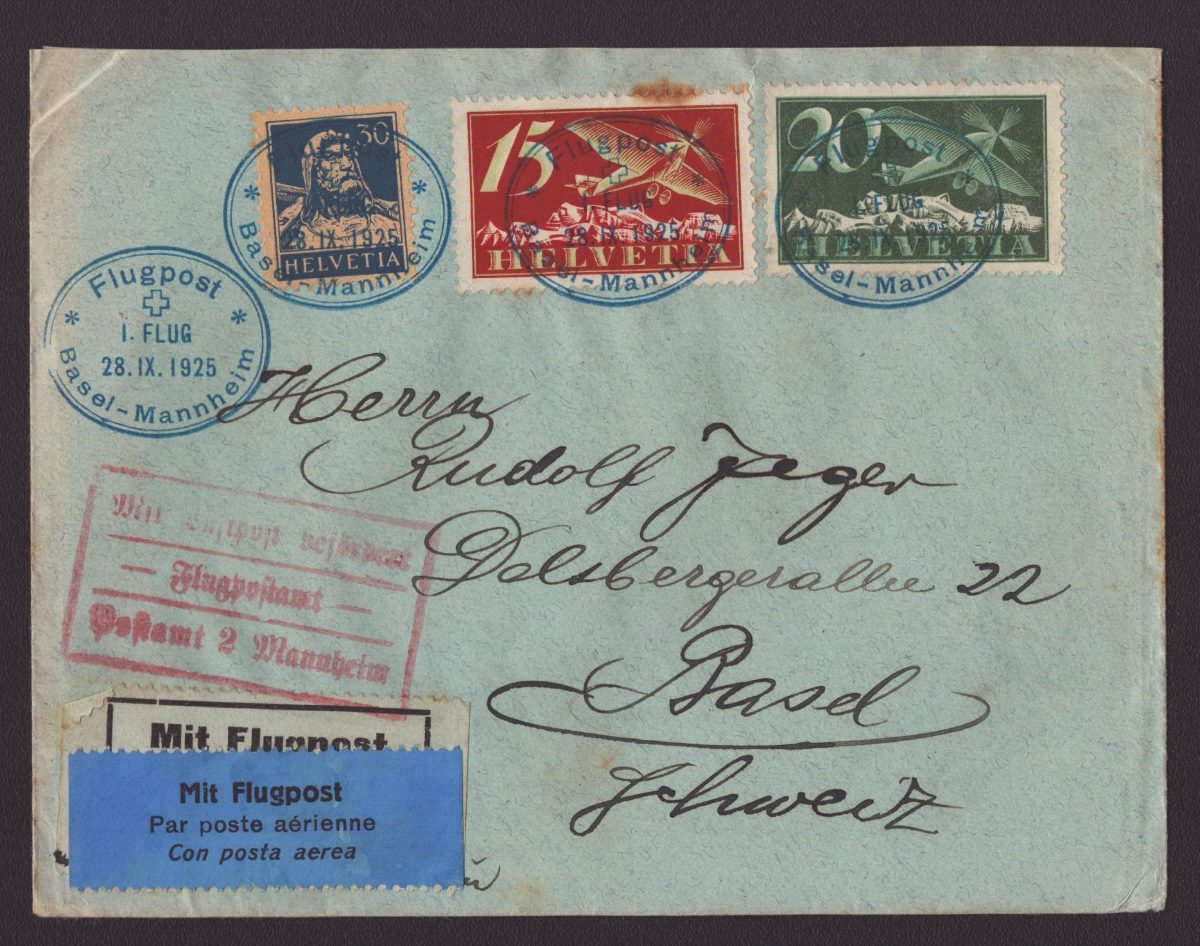 30
HELVETIA
28.IX.1925
Basel-Mannheim
15
HELVETIA
Flugpost
I. FLUG
28.IX.1925
Basel-Mannheim
20
HELVETIA
Flugpost
I. FLUG
28.IX.1925
Basel-Mannheim
Flugpost
I. FLUG
28.IX.1925
Basel-Mannheim
Herrn
Rudolf Jeger
Delsbergerallee 22
Basel
Schweiz
Mit Luftpost befördert
— Flugpostamt —
Postamt 2 Mannheim
Mit Flugpost
Mit Flugpost
Par poste aérienne
Con posta aerea